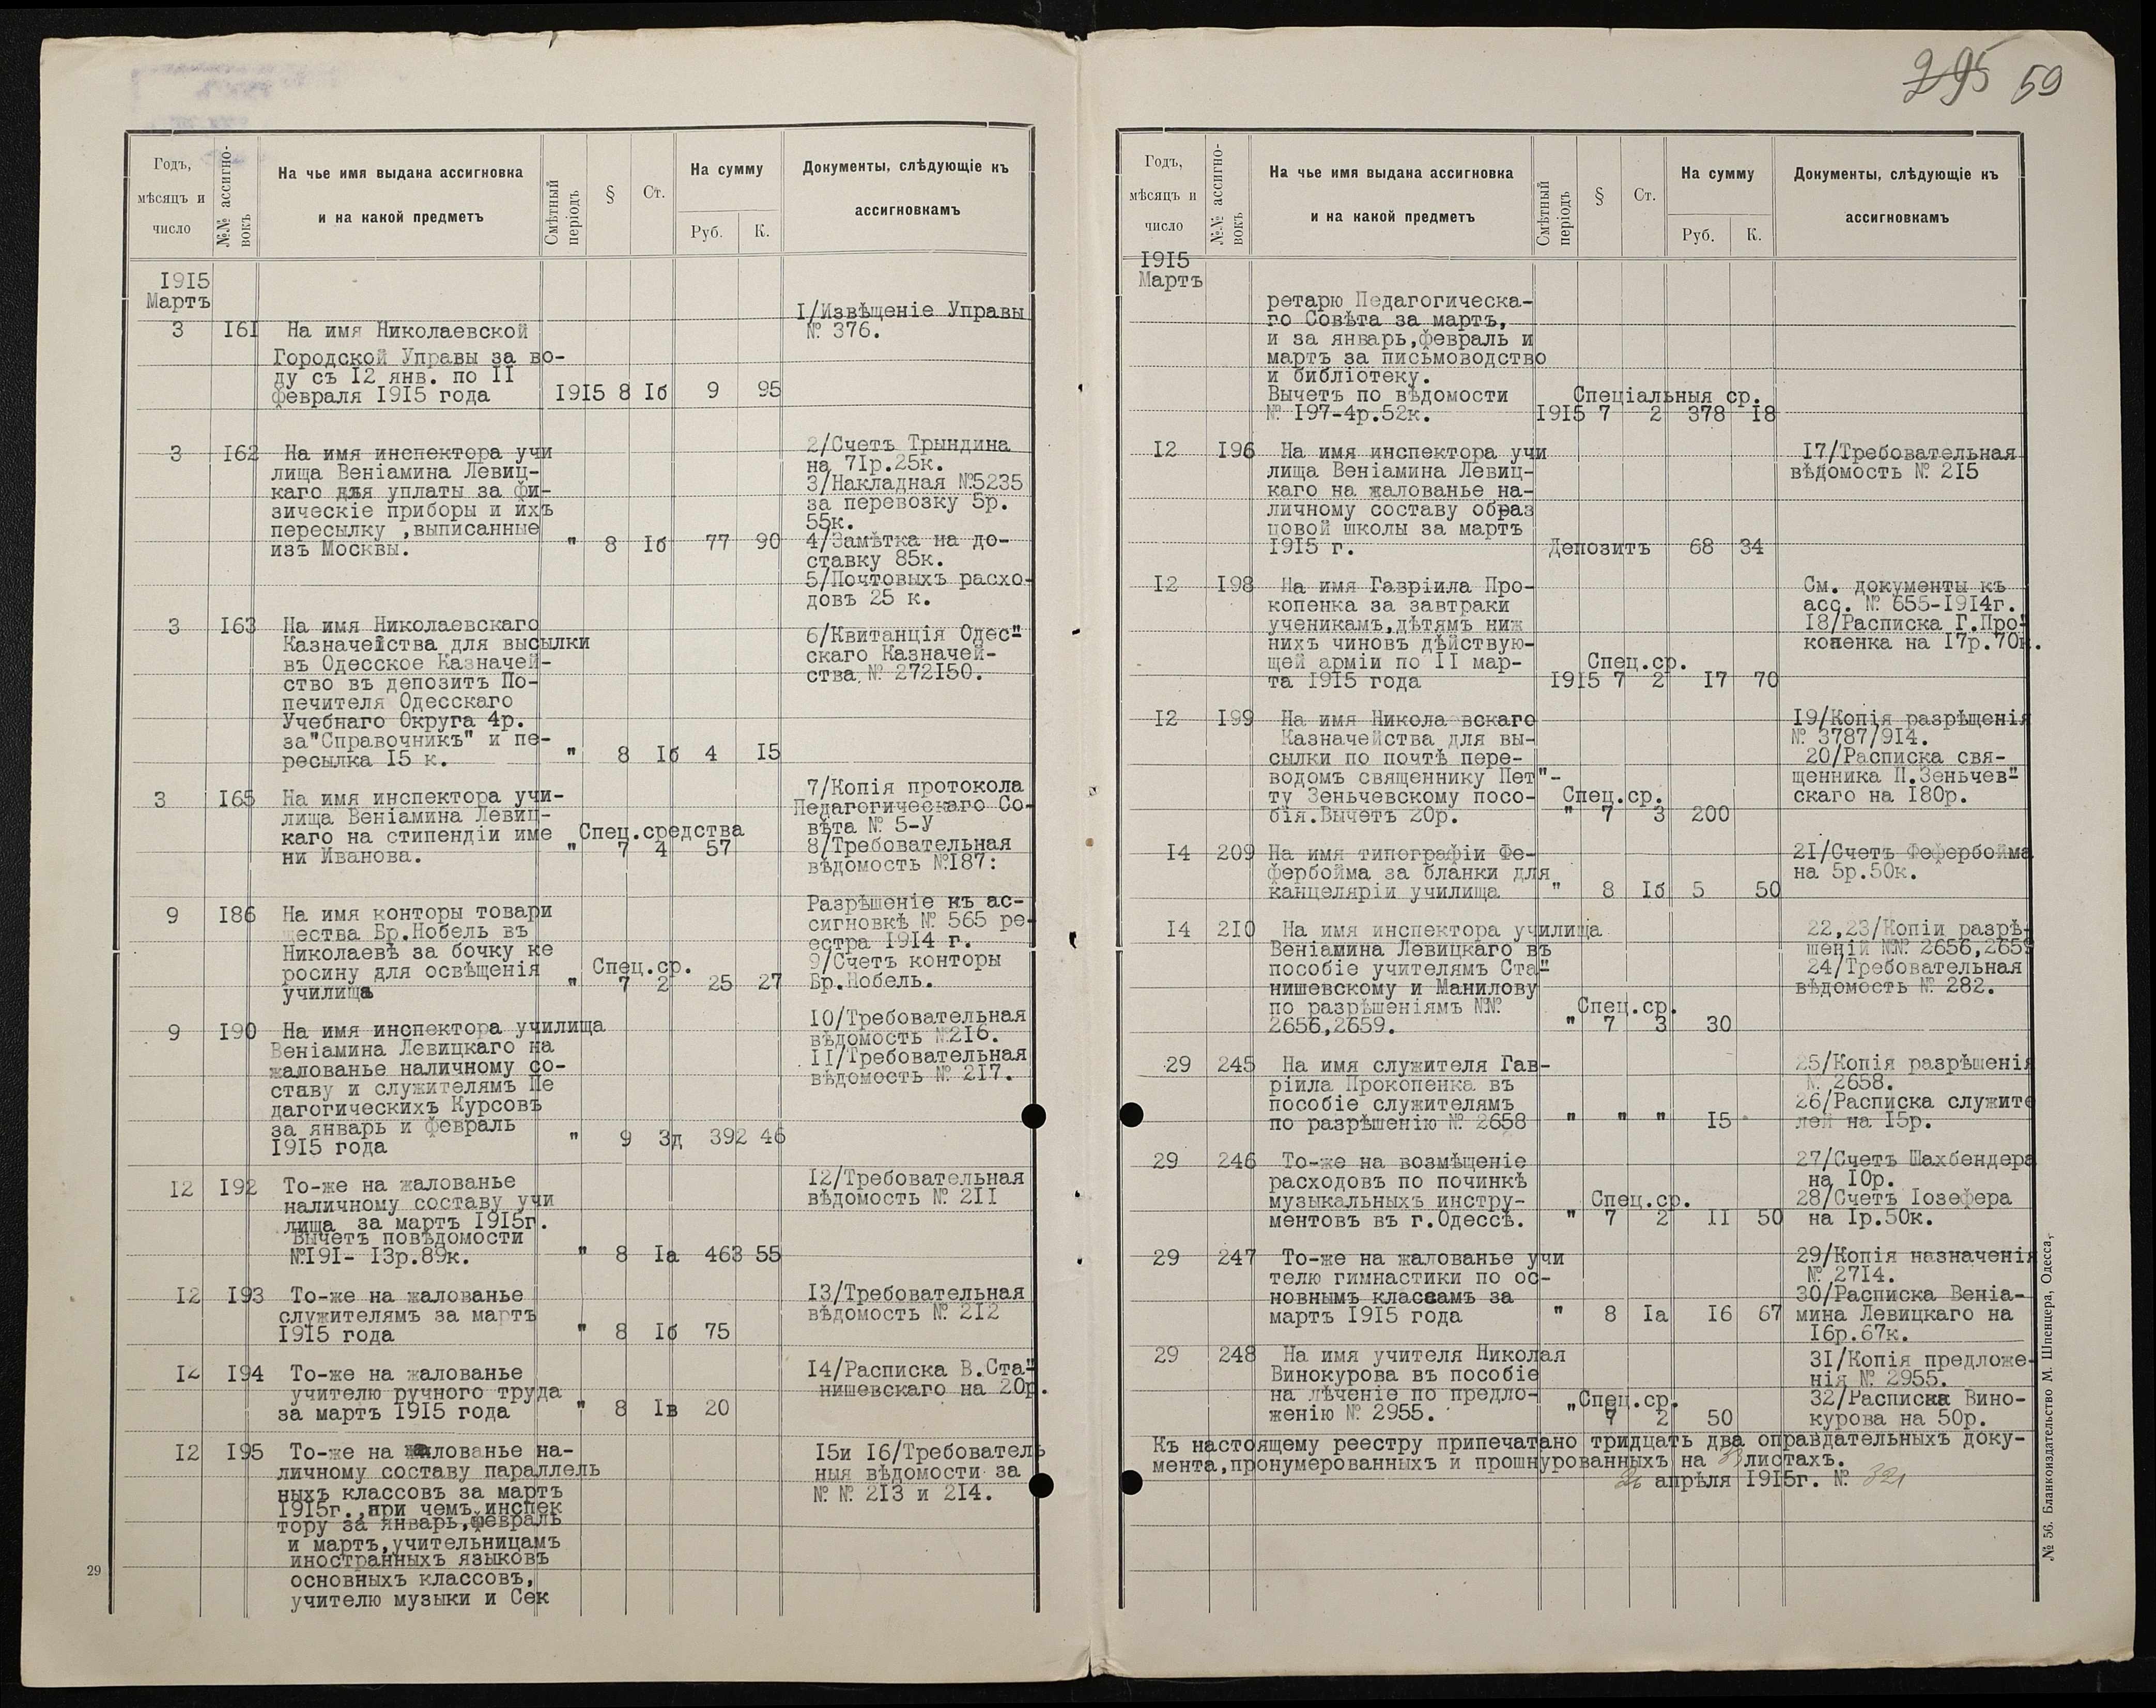 295 59
Годъ, мѣсяцъ и число
№№ ассигновокъ
На чье имя выдана ассигновка
и на какой предметъ
Смѣтный періодъ
§
Ст.
На сумму
Руб. К.
Документы, слѣдующіе къ
ассигновкамъ
1915
Мартъ
3 161 На имя Николаевской
Городской Управы за во-
ду съ 12 янв. по 11
февраля 1915 года 1915 8 1б 9 95
1/Извѣщеніе Управы
№ 376.
3 162 На имя инспектора учи
лища Веніамина Левиц-
каго для уплаты за фи-
зическіе приборы и ихъ
пересылку ,выписанные
изъ Москвы. " 8 1б 77 90
2/Счетъ Трындина
на 71р.25к.
3/Накладная №5235
за перевозку 5р.
55к.
4/Замѣтка на до-
ставку 85к.
5/Почтовыхъ расхо-
довъ 25 к.
3 163 На имя Николаевскаго
Казначейства для высылки
въ Одесское Казначей-
ство въ депозитъ По-
печителя Одесскаго
Учебнаго Округа 4р.
за"Справочникъ" и пе-
ресылка 15 к. " 8 1б 4 15
6/Квитанція Одес-
скаго Казначей-
ства № 272150.
3 165 На имя инспектора учи-
лища Веніамина Левиц-
каго на стипендіи име Спец.средства
ни Иванова. " 7 4 57
7/Копія протокола
Педагогическаго Со-
вѣта № 5-У
8/Требовательная
вѣдомость №187:
9 186 На имя конторы товари
щества Бр.Нобель въ
Николаевѣ за бочку ке
росину для освѣщенія Спец.ср.
училища " 7 2 25 27
Разрѣшеніе къ ас-
сигновкѣ № 565 ре-
естра 1914 г.
9/Счетъ конторы
Бр.Нобель.
9 190 На имя инспектора училища
Веніамина Левицкаго на
жалованье наличному со-
ставу и служителямъ Пе
дагогическихъ Курсовъ
за январь и февраль
1915 года " 9 3д 392 46
10/Требовательная
вѣдомость №216.
11/Требовательная
вѣдомость № 217.
12 192 То-же на жалованье
наличному составу учи
лища за мартъ 1915г.
Вычетъ повѣдомости
№191- 13р.89к. " 8 1а 463 55
12/Требовательная
вѣдомость № 211
12 193 То-же на жалованье
служителямъ за мартъ
1915 года " 8 1б 75
13/Требовательная
вѣдомость № 212
12 194 То-же на жалованье
учителю ручного труда
за мартъ 1915 года " 8 1в 20
14/Расписка В.Ста-
нишевскаго на 20р.
12 195 То-же на жалованье на-
личному составу параллель
ныхъ классовъ за мартъ
1915г.,при чемъ инспек
тору за январь,февраль
и мартъ,учительницамъ
иностранныхъ языковъ
основныхъ классовъ,
учителю музыки и Сек
15и 16/Требователь
ныя вѣдомости за
№ № 213 и 214.
29
Годъ, мѣсяцъ и число
№№ ассигновокъ
На чье имя выдана ассигновка
и на какой предметъ
Смѣтный періодъ
§
Ст.
На сумму
Руб. К.
Документы, слѣдующіе къ
ассигновкамъ
1915
Мартъ
ретарю Педагогическа-
го Совѣта за мартъ,
и за январь,февраль и
мартъ за письмоводство
и библіотеку.
Вычетъ по вѣдомости Спеціальныя ср.
№ 197-4р.52к. 1915 7 2 378 18
12 196 На имя инспектора учи
лища Веніамина Левиц-
каго на жалованье на-
личному составу образ
цовой школы за мартъ
1915 г. Депозитъ 68 34
17/Требовательная
вѣдомость № 215
12 198 На имя Гавріила Про-
копенка за завтраки
ученикамъ,дѣтямъ ниж
нихъ чиновъ дѣйствую-
щей арміи по 11 мар- Спец.ср.
та 1915 года 1915 7 2 17 70
См. документы къ
асс. № 655-1914г.
18/Расписка Г.Про-
копенка на 17р.70к.
12 199 На имя Николаевскаго
Казначейства для вы-
сылки по почтѣ пере-
водомъ священнику Пет"-
ту Зеньчевскому посо- Спец.ср.
бія.Вычетъ 20р. " 7 3 200
19/Копія разрѣщенія
№ 3787/914.
20/Расписка свя-
щенника П.Зеньчев-
скаго на 180р.
14 209 На имя типографіи Фе-
фербойма за бланки для
канцеляріи училища " 8 1б 5 50
21/Счетъ Фефербойма
на 5р.50к.
14 210 На имя инспектора училища
Веніамина Левицкаго въ
пособіе учителямъ Ста-
нишевскому и Манилову
по разрѣшеніямъ №№ Спец.ср.
2656,2659. " 7 3 30
22,23/Копіи разрѣ-
шеній №№ 2656,2659
24/Требовательная
вѣдомость № 282.
29 245 На имя служителя Гав-
ріила Прокопенка въ
пособіе служителямъ
по разрѣшенію № 2658 " " " 15
25/Копія разрѣшенія
№ 2658.
26/Расписка служите
лей на 15р.
29 246 То-же на возмѣщеніе
расходовъ по починкѣ
музыкальныхъ инстру- Спец.ср.
ментовъ въ г.Одессѣ. " 7 2 11 50
27/Счетъ Шахбендера
на 10р.
28/Счетъ Іозефера
на 1р.50к.
29 247 То-же на жалованье учи
телю гимнастики по ос-
новнымъ классамъ за
мартъ 1915 года " 8 1а 16 67
29/Копія назначенія
№ 2714.
30/Расписка Веніа-
мина Левицкаго на
16р.67к.
29 248 На имя учителя Николая
Винокурова въ пособіе
на лѣченіе по предло- Спец.ср.
женію № 2955. " 7 2 50
31/Копія предложе-
нія № 2955.
32/Расписка Вино-
курова на 50р.
Къ настоящему реестру припечатано тридцать два оправдательныхъ доку-
мента,пронумерованныхъ и прошнурованныхъ на листахъ.
апрѣля 1915г. № 321
№ 56. Бланкоиздательство М. Шпенцера, Одесса,